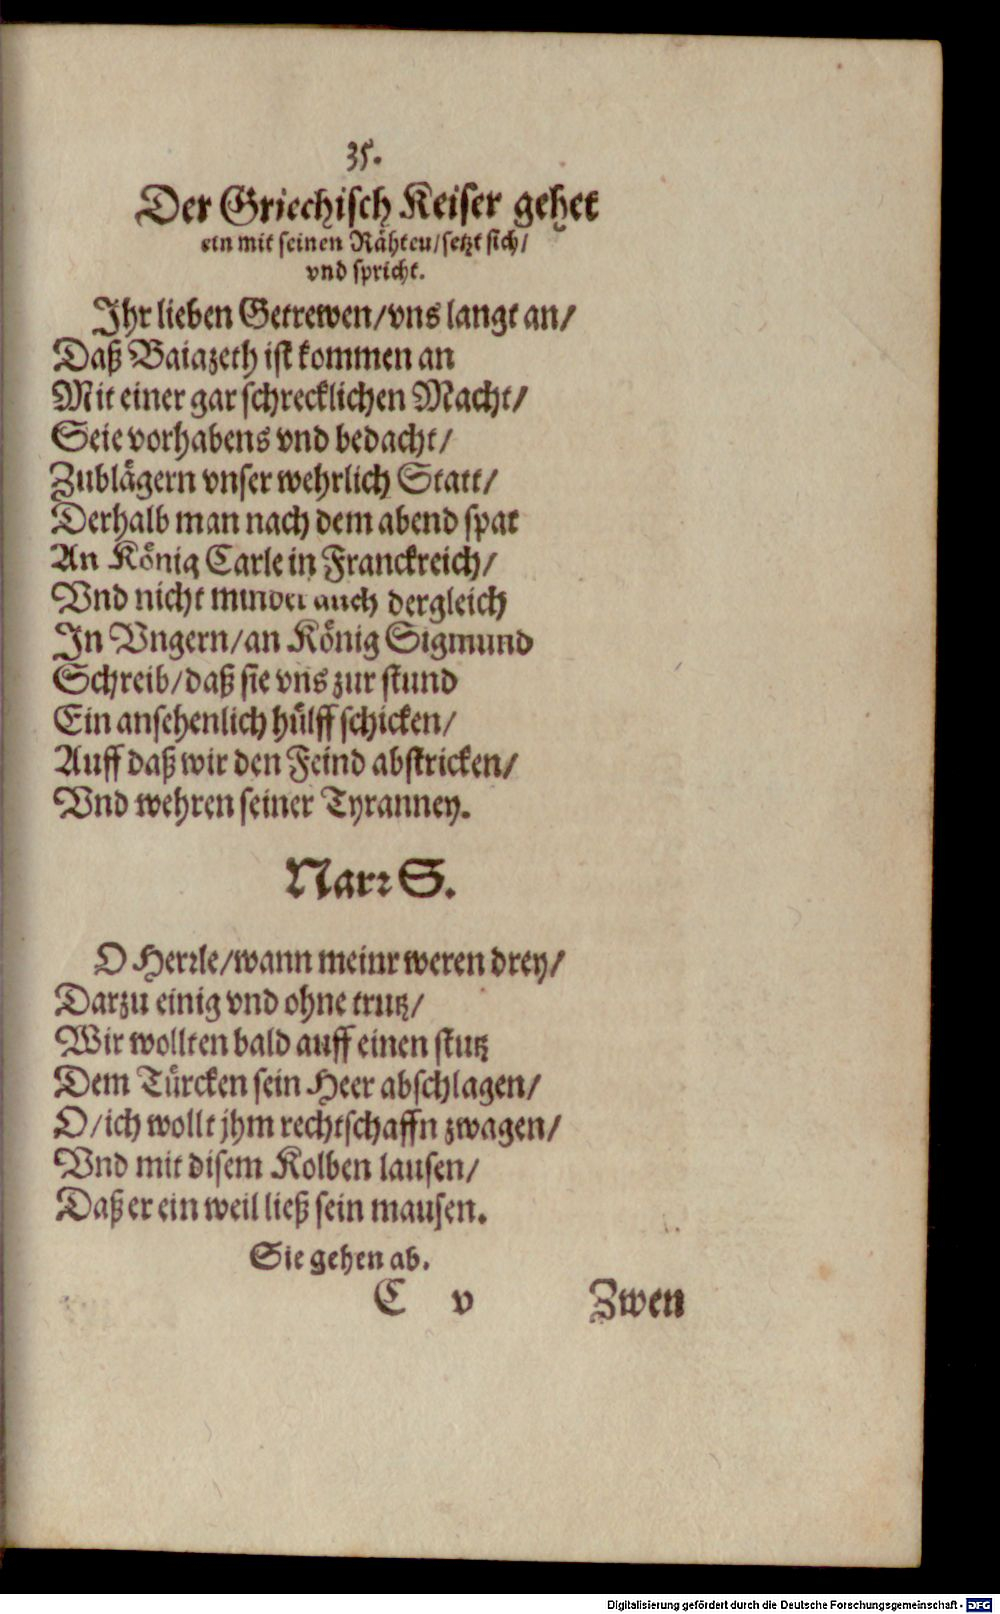 35.
Der Griechisch Keiser gehet
ein mit seinen Rähten/setzt sich/
vnd spricht.
Ihr lieben Getrewen/vns langt an/
Daß Baiazeth ist kommen an
Mit einer gar schrecklichen Macht/
Seie vorhabens vnd bedacht/
Zublägern vnser wehrlich Statt/
Derhalb man nach dem abend spat
An König Carle in Franckreich/
Vnd nicht minder auch dergleich
In Vngern/an König Sigmund
Schreib/daß sie vns zur stund
Ein ansehenlich hülff schicken/
Auff daß wir den Feind abstricken/
Vnd wehren seiner Tyranney.
Narr S.
O Herrle/wann meinr weren drey/
Darzu einig vnd ohne trutz/
Wir wollten bald auff einen stutz
Dem Türcken sein Heer abschlagen/
O/ich wollt jhm rechtschaffn zwagen/
Vnd mit disem Kolben lausen/
Daß er ein weil ließ sein mausen.
Sie gehen ab.
C v Zwen
Digitalisierung gefördert durch die Deutsche Forschungsgemeinschaft - DFG